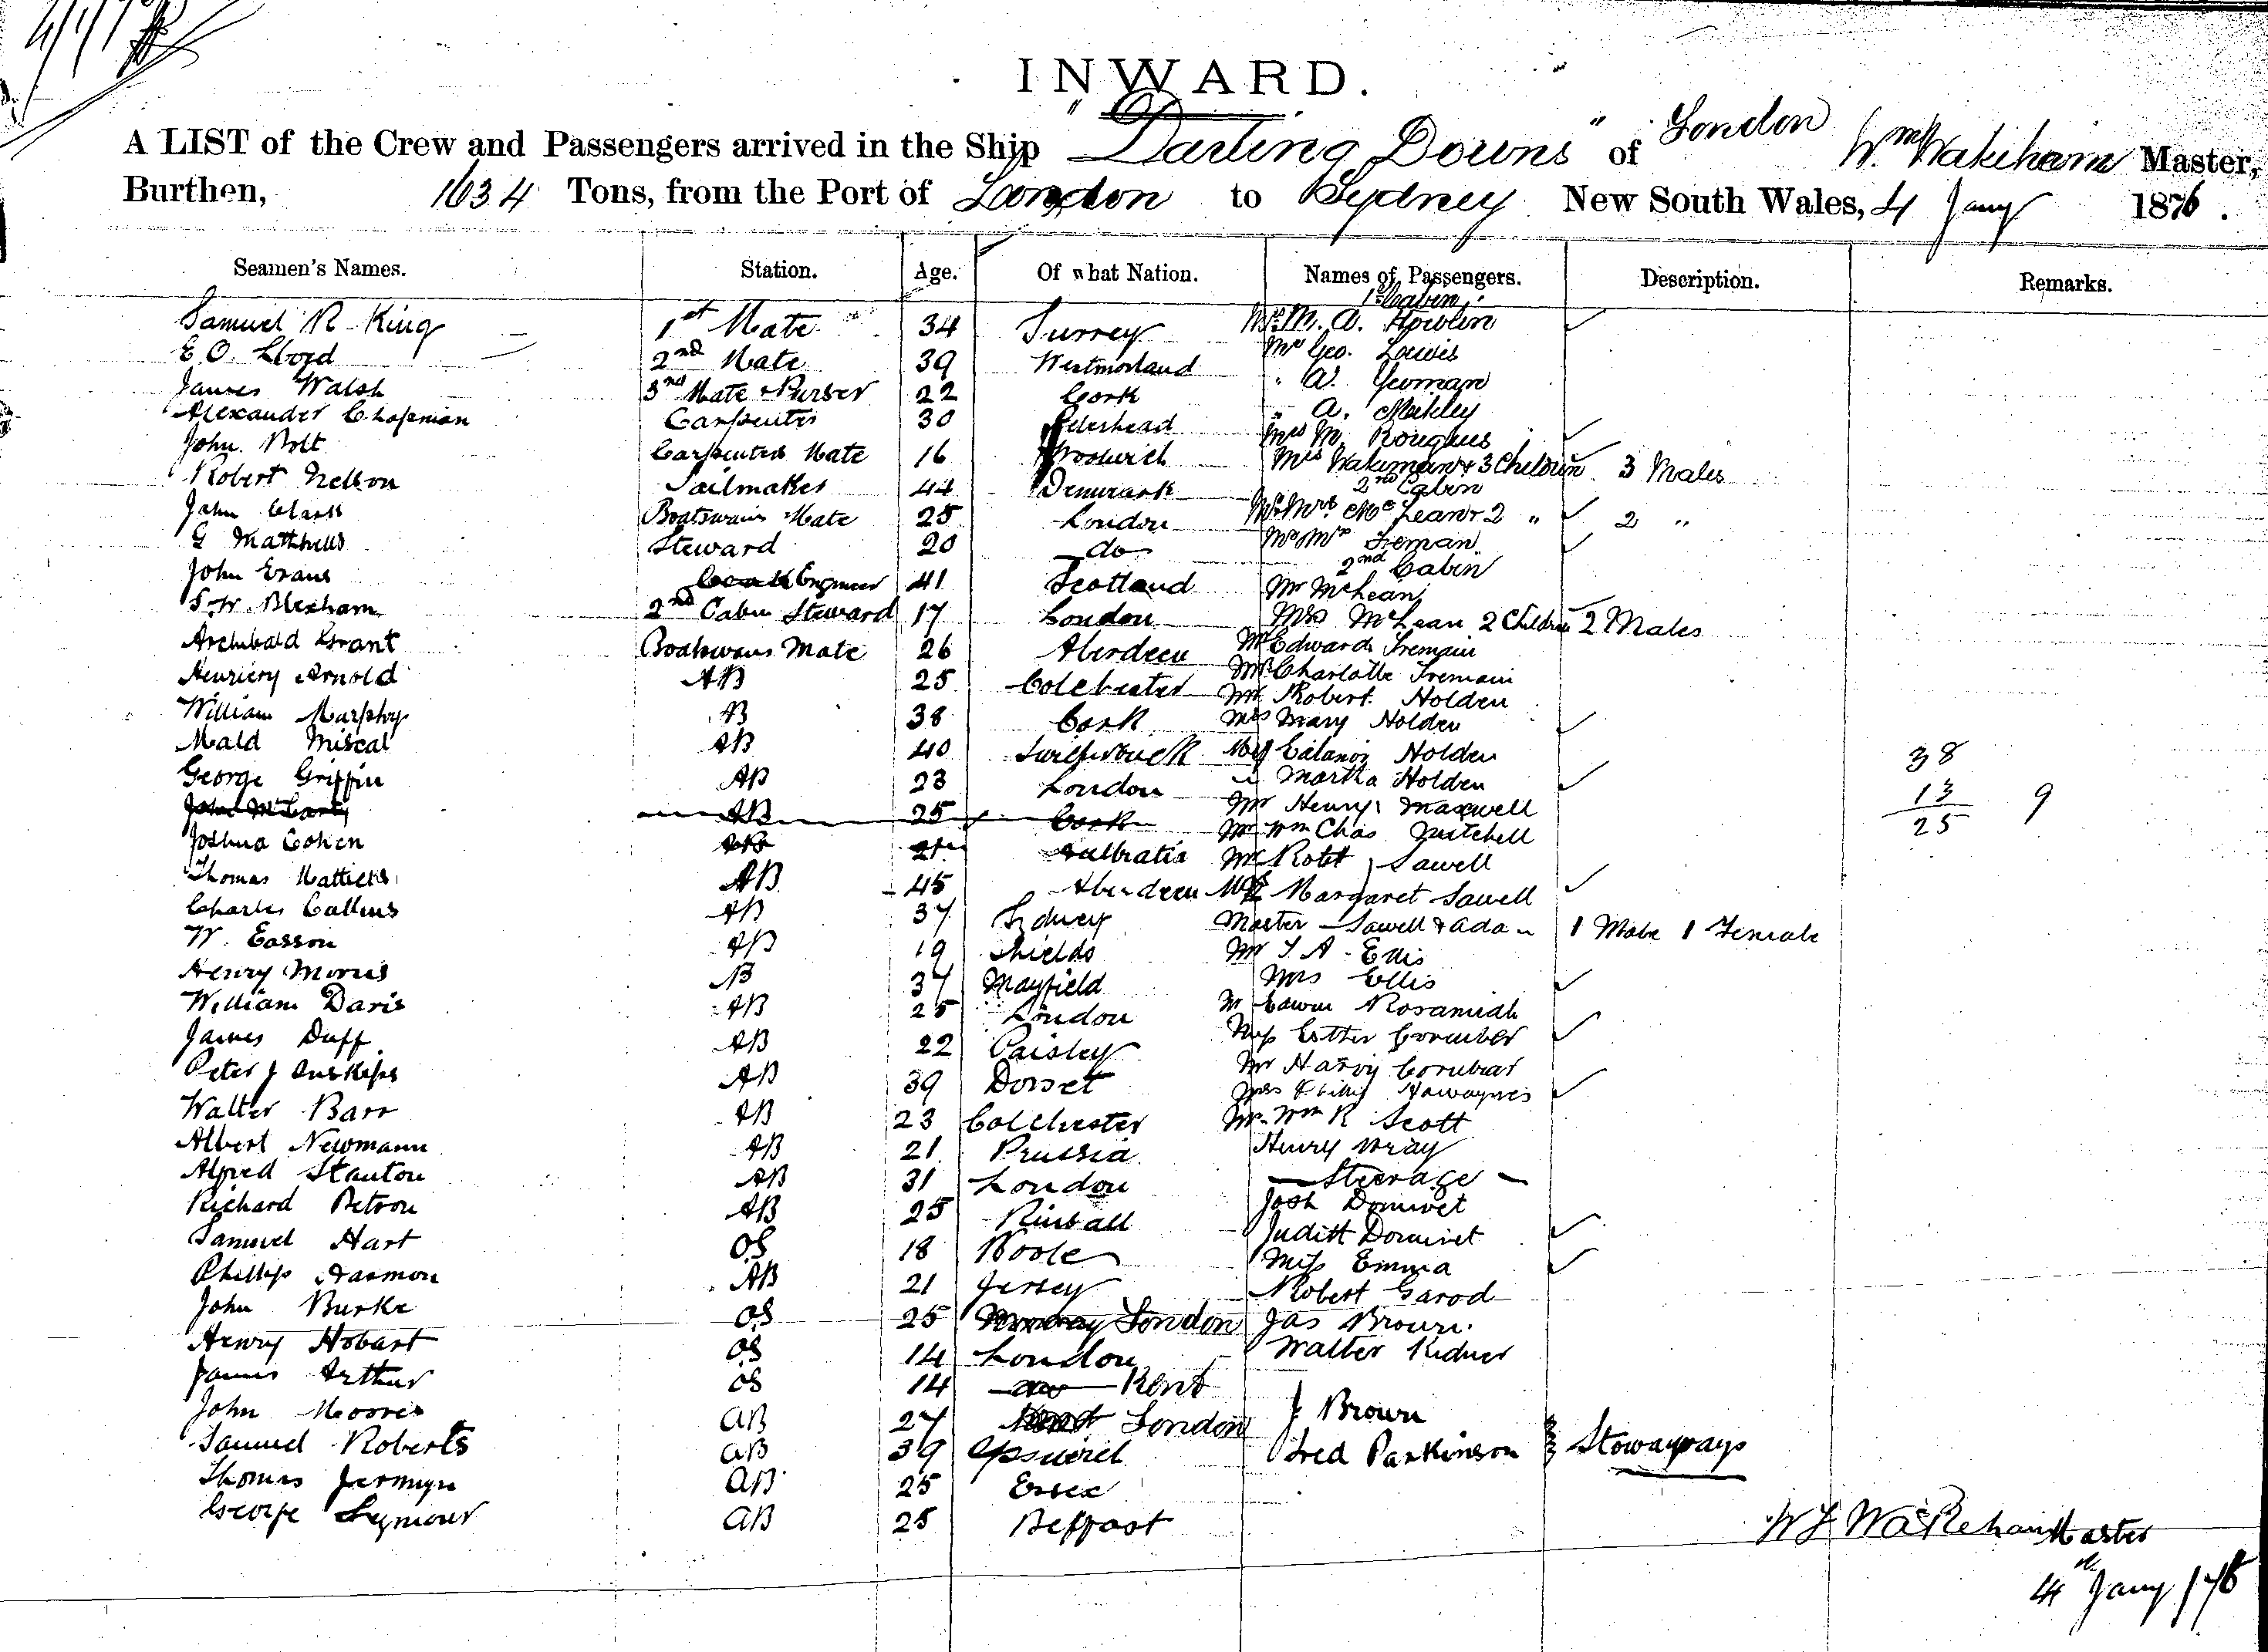 INWARD.
A LIST of the Crew and Passengers arrived in the Ship "Darling Downs" of London Wm Wakeham Master,
Burthen, 1634 Tons, from the Port of London to Sydney New South Wales, 4 Jany 1876.
Seamen's Names. Station. Age. Of what Nation. Names of Passengers. Description. Remarks.
1st Cabin
Samuel R King 1st Mate 34 Surrey M. A. Howlin
E O. Lloyd 2nd Mate 39 Westmorland Mr Geo. Lewis
James Walsh 3rd Mate & Purser 22 Cork " A. Yeoman
Alexander Chapman Carpenter 30 Peterhead " A. Mekley
John Bolt Carpenters Mate 16 Woolwich Mrs M.
Robert Nelson Sailmaker 44 Denmark Mrs Wakeman & 3 Children 3 Males
2nd Cabin
John Clark Boatswains Mate 25 London Mr Mrs McLean & 2 " 2 "
G Matthews Steward 20 do Mr Mrs Treman
2nd Cabin
John Evans Engineer 41 Scotland Mr McLean
S. W. Blexham 2nd Cabin Steward 17 London Mrs McLean 2 Children 2 Males
Archibald Grant Boatswans Mate 26 Aberdeen Mr Edward Tremain
Arnold AB 25 Colchester Mrs Charlotte Tremain
Mr Robert Holden
William Murphy AB 38 Cork Mrs Mary Holden
Mald Miscal AB 40 Miss Holden
George Griffin AB 23 London " Martha Holden
John McCarty AB 25 Cork Mr Henry Maxwell
Joshua Cohen AB Mr Wm Chas Mitchell
Mr Robt Sawell
Thomas AB 45 Aberdeen Mrs Margaret Sawell
Charles Callins AB 37 Sydney Master Sawell & Ada " 1 Male 1 Female
W. Easson AB 19 Shields Mr T A Ellis
Henry Morris AB 37 Mayfield Mrs Ellis
William Davis AB 25 London Mr Edwin
James Duff AB 22 Paisley Miss Esther
Peter J Inskips AB 39 Dorset Mr Harvy
Mrs
Walter Barr AB 23 Colchester Mr Wm R Scott
Albert Newmann AB 21 Prussia Henry Wray
Alfred Stanton AB 31 London Steerage
Richard Petron AB 25 Josh Dominet
Samuel Hart OS 18 Poole Judith Dominet
Phillip AB 21 Jersey Miss Emma
Robert Garod
John Burke OS 25 London Jas Brown.
Henry Hobart OS 14 London Walter Kidner
James Arthur OS 14 Kent
John Moores AB 27 London J Brown
Samuel Roberts AB 39 Ipswich Fred Parkinson Stowaways
Thomas Jermyn AB 25 Essex
George Seymour AB 25 Belfast
38
13 9
25
W Wakeham Master
4th Jany /76